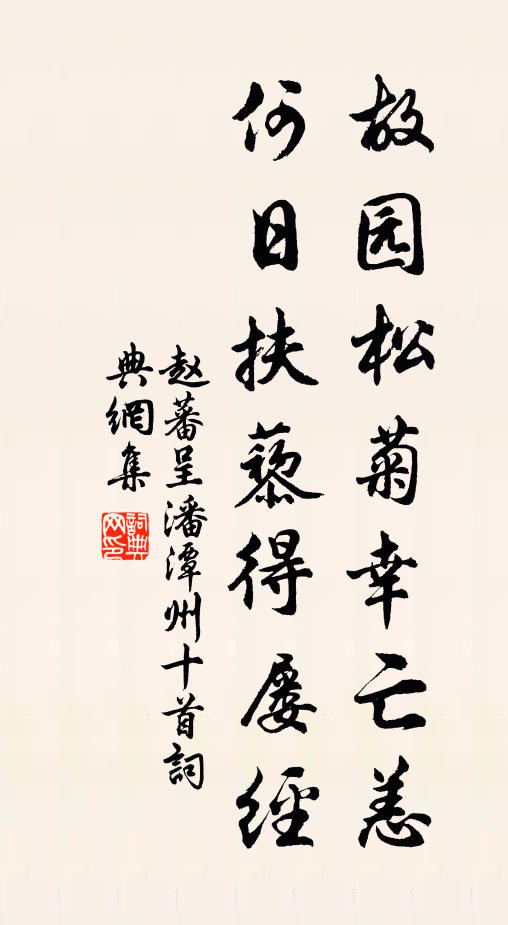 故园松菊幸亡恙
何日扶藜得屡经
赵蕃呈潘潭州十首詞
典網集
詞典网印